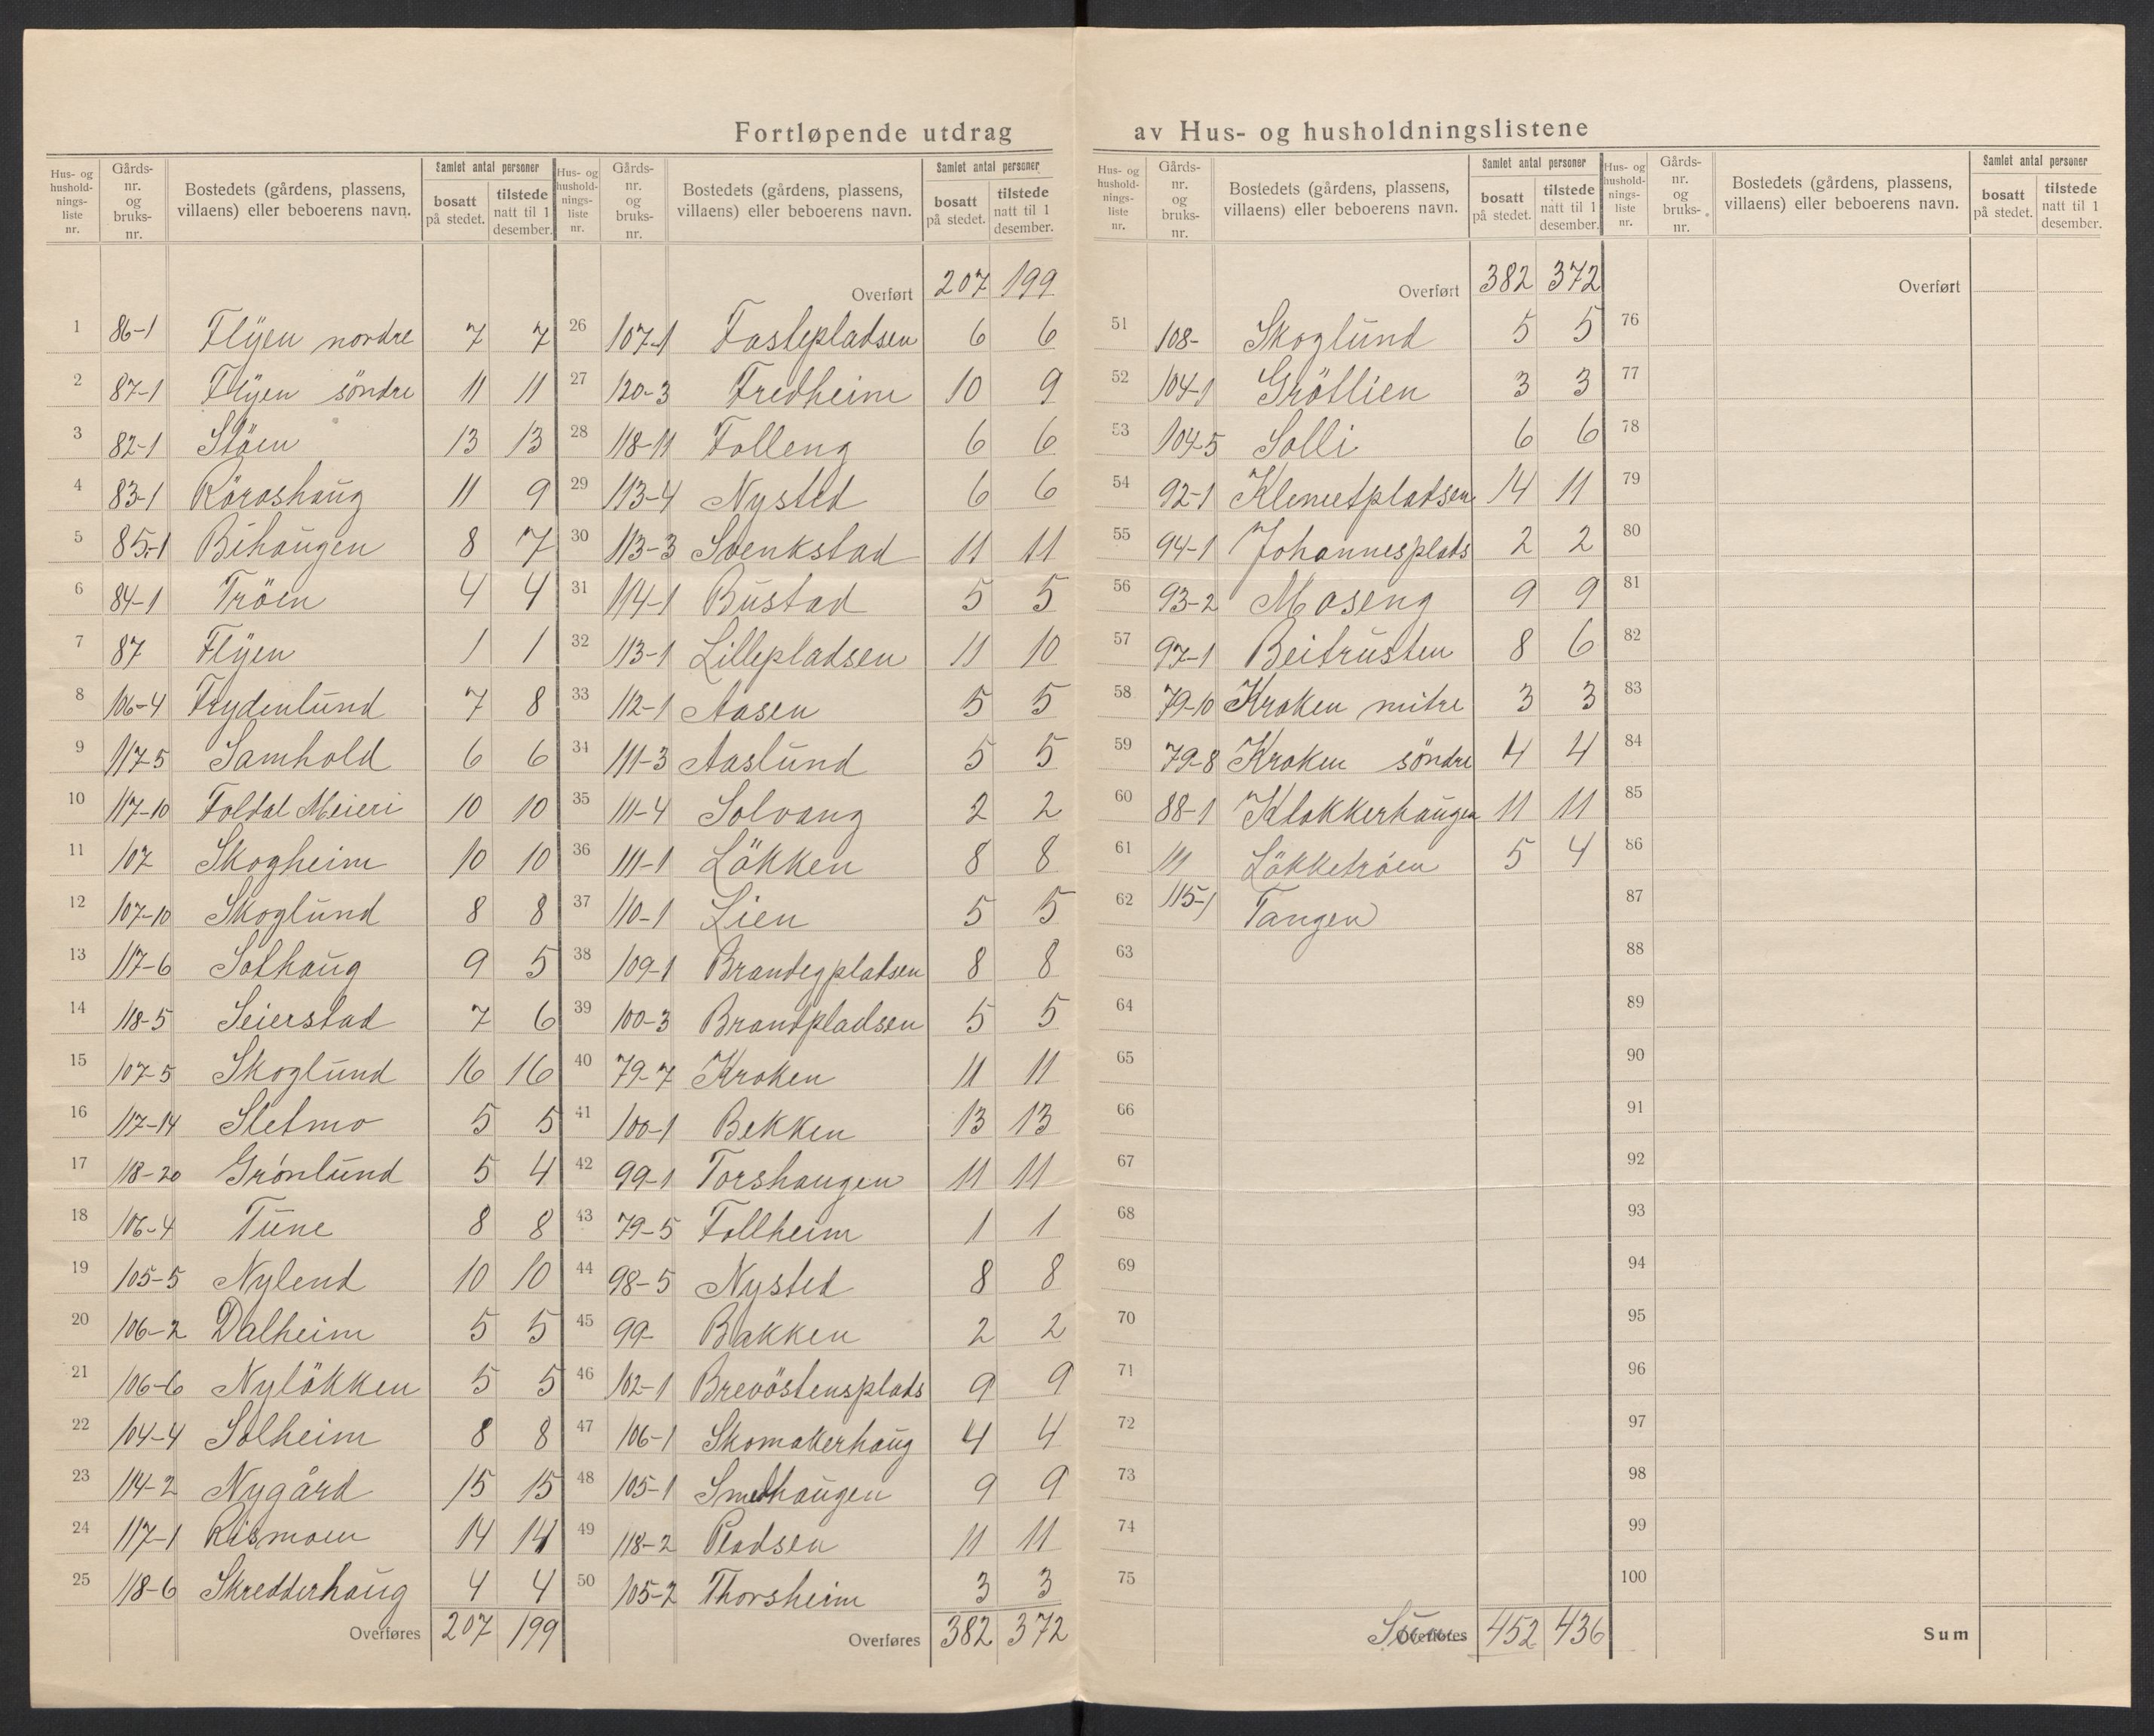 Fortløpende utdrag av Hus- og husholdningslistene
Hus- og hushold-nings-liste nr. | Gårds-nr. og bruks-nr. | Bostedets (gårdens, plassens, villaens) eller beboerens navn. | Samlet antal personer | bosatt på stedet. | tilstede natt til 1 desember.
1 86-1 Flÿen nordre 7 7
2 87-1 Flÿen söndre 11 11
3 82-1 Stöen 13 13
4 83-1 Röroshaug 11 9
5 85-1 Bihaugen 8 7
6 84-1 Tröen 4 4
7 87 Flÿen 1 1
8 106-4 Frydenlund 7 8
9 117-5 Samhold 6 6
10 117-10 Foldal Meieri 10 10
11 107 Skogheim 10 10
12 107-10 Skoglund 8 8
13 117-6 Solhaug 9 5
14 118-5 Seierstad 7 6
15 107-5 Skoglund 16 16
16 117-14 Sletmo 5 5
17 118-20 Grönlund 5 4
18 106-4 Tune 8 8
19 105-5 Nylend 10 10
20 106-2 Dalheim 5 5
21 106-6 Nylökken 5 5
22 104-4 Solheim 8 8
23 114-2 Nygård 15 15
24 117-1 Rismoen 14 14
25 118-6 Skredderhaug 4 4
Overføres 207 199
Hus- og hushold-nings-liste nr. | Gårds-nr. og bruks-nr. | Bostedets (gårdens, plassens, villaens) eller beboerens navn. | Samlet antal personer | bosatt på stedet. | tilstede natt til 1 desember.
Overført 207 199
26 107-1 Faslepladsen 6 6
27 120-3 Fredheim 10 9
28 118-11 Folleng 6 6
29 113-4 Nysted 6 6
30 113-3 Svenkstad 11 11
31 114-1 Bustad 5 5
32 113-1 Lillepladsen 11 10
33 112-1 Aasen 5 5
34 111-3 Aaslund 5 5
35 111-4 Solvang 2 2
36 111-1 Lökken 8 8
37 110-1 Lien 5 5
38 109-1 Brandegpladsen 8 8
39 100-3 Brandpladsen 5 5
40 79-7 Kroken 11 11
41 100-1 Bekken 13 13
42 99-1 Torshaugen 11 11
43 79-5 Follheim 1 1
44 98-5 Nysted 8 8
45 99- Bakken 2 2
46 102-1 Brevöstensplads 9 9
47 106-1 Skomakerhaug 4 4
48 105-1 Smedhaugen 9 9
49 118-2 Pladsen 11 11
50 105-2 Thorsheim 3 3
Overføres 382 372
Hus- og hushold-nings-liste nr. | Gårds-nr. og bruks-nr. | Bostedets (gårdens, plassens, villaens) eller beboerens navn. | Samlet antal personer | bosatt på stedet. | tilstede natt til 1 desember.
Overført 382 372
51 108- Skoglund 5 5
52 104-1 Gröllien 3 3
53 104-5 Solli 6 6
54 92-1 Klemetpladsen 14 11
55 94-1 Johannesplads 2 2
56 93-2 Moseng 9 9
57 97-1 Beitrusten 8 6
58 79-10 Kroken mitre 3 3
59 79-8 Kroken söndre 4 4
60 88-1 Klokkerhaugen 11 11
61 111 Lökketröen 5 4
62 115-1 Tangen
63
64
65
66
67
68
69
70
71
72
73
74
75
Overføres Sum 452 436
Hus- og hushold-nings-liste nr. | Gårds-nr. og bruks-nr. | Bostedets (gårdens, plassens, villaens) eller beboerens navn. | Samlet antal personer | bosatt på stedet. | tilstede natt til 1 desember.
Overført
76
77
78
79
80
81
82
83
84
85
86
87
88
89
90
91
92
93
94
95
96
97
98
99
100
Sum